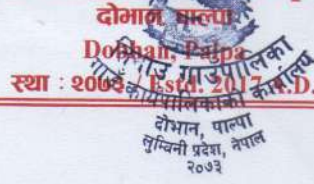 दोभान, पाल्पा
Dobhan, Palpa
स्था : २०७३ / Estd. 2017 A.D.
गाउँपालिका
गाउँ कार्यपालिकाको कार्यालय
दोभान, पाल्पा
लुम्बिनी प्रदेश, नेपाल
२०७३